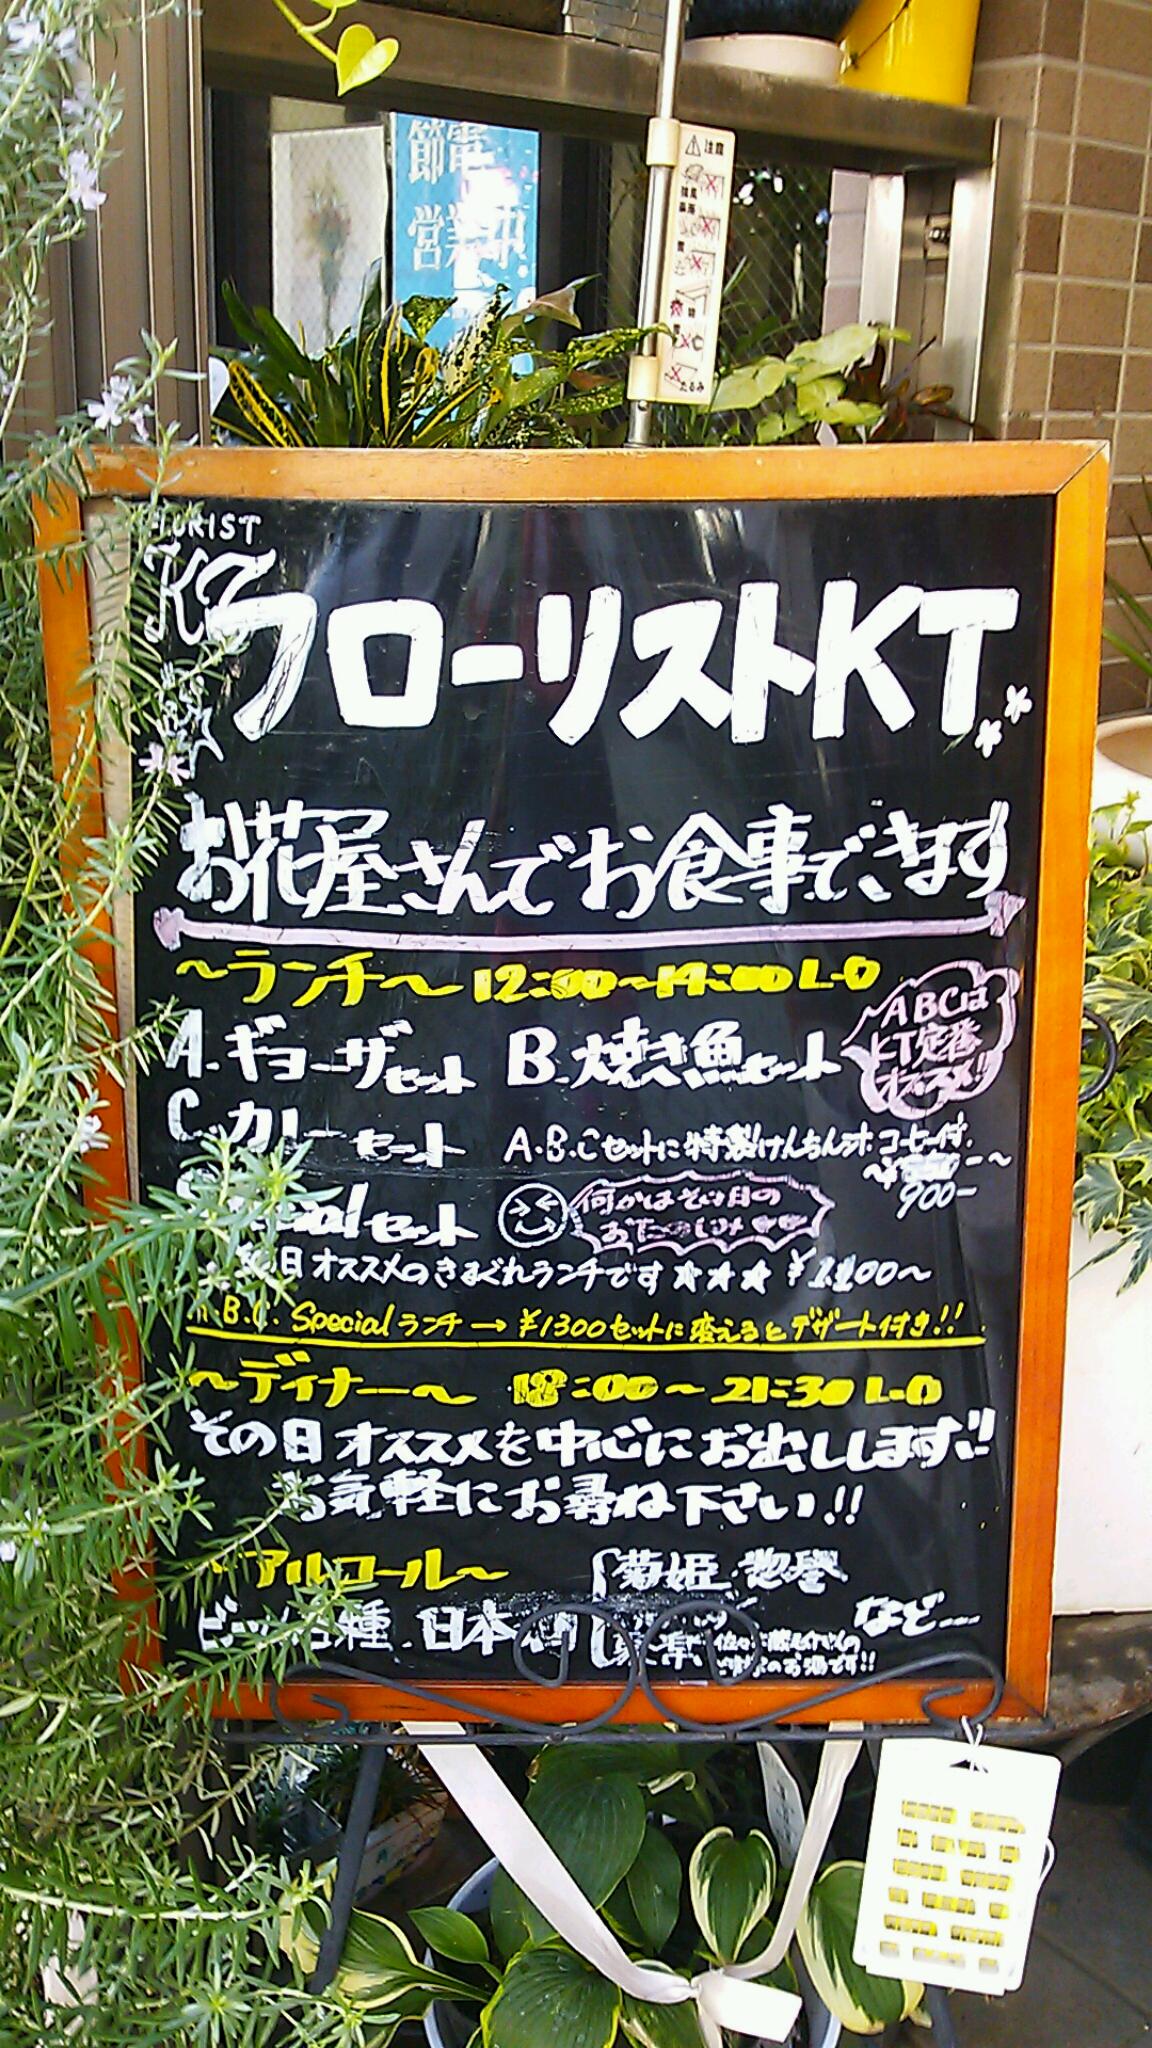 節電
営業中
注意
たるみ
KT
フローリストKT
お花屋さんでお食事できます
～ランチ～ 12:00～14:00 L・O
A.ギョーザセット B.焼き魚セット
ABCは
KT定番
オススメ!!
C.カレーセット A.B.Cセットに特製けんちん汁.コーヒー付.
900-
セット 何かはその日の
おたのしみ
日オススメのきまぐれランチです★★★ ¥1100～
B.C. Specialランチ→¥1300セットに変えるとデザート付き!!
～ディナー～ 18:00～21:30 L・O
その日オススメを中心にお出しします!!
お気軽にお尋ね下さい!!
アルコール～ 菊姫
種.日本 など...
のお酒です!!